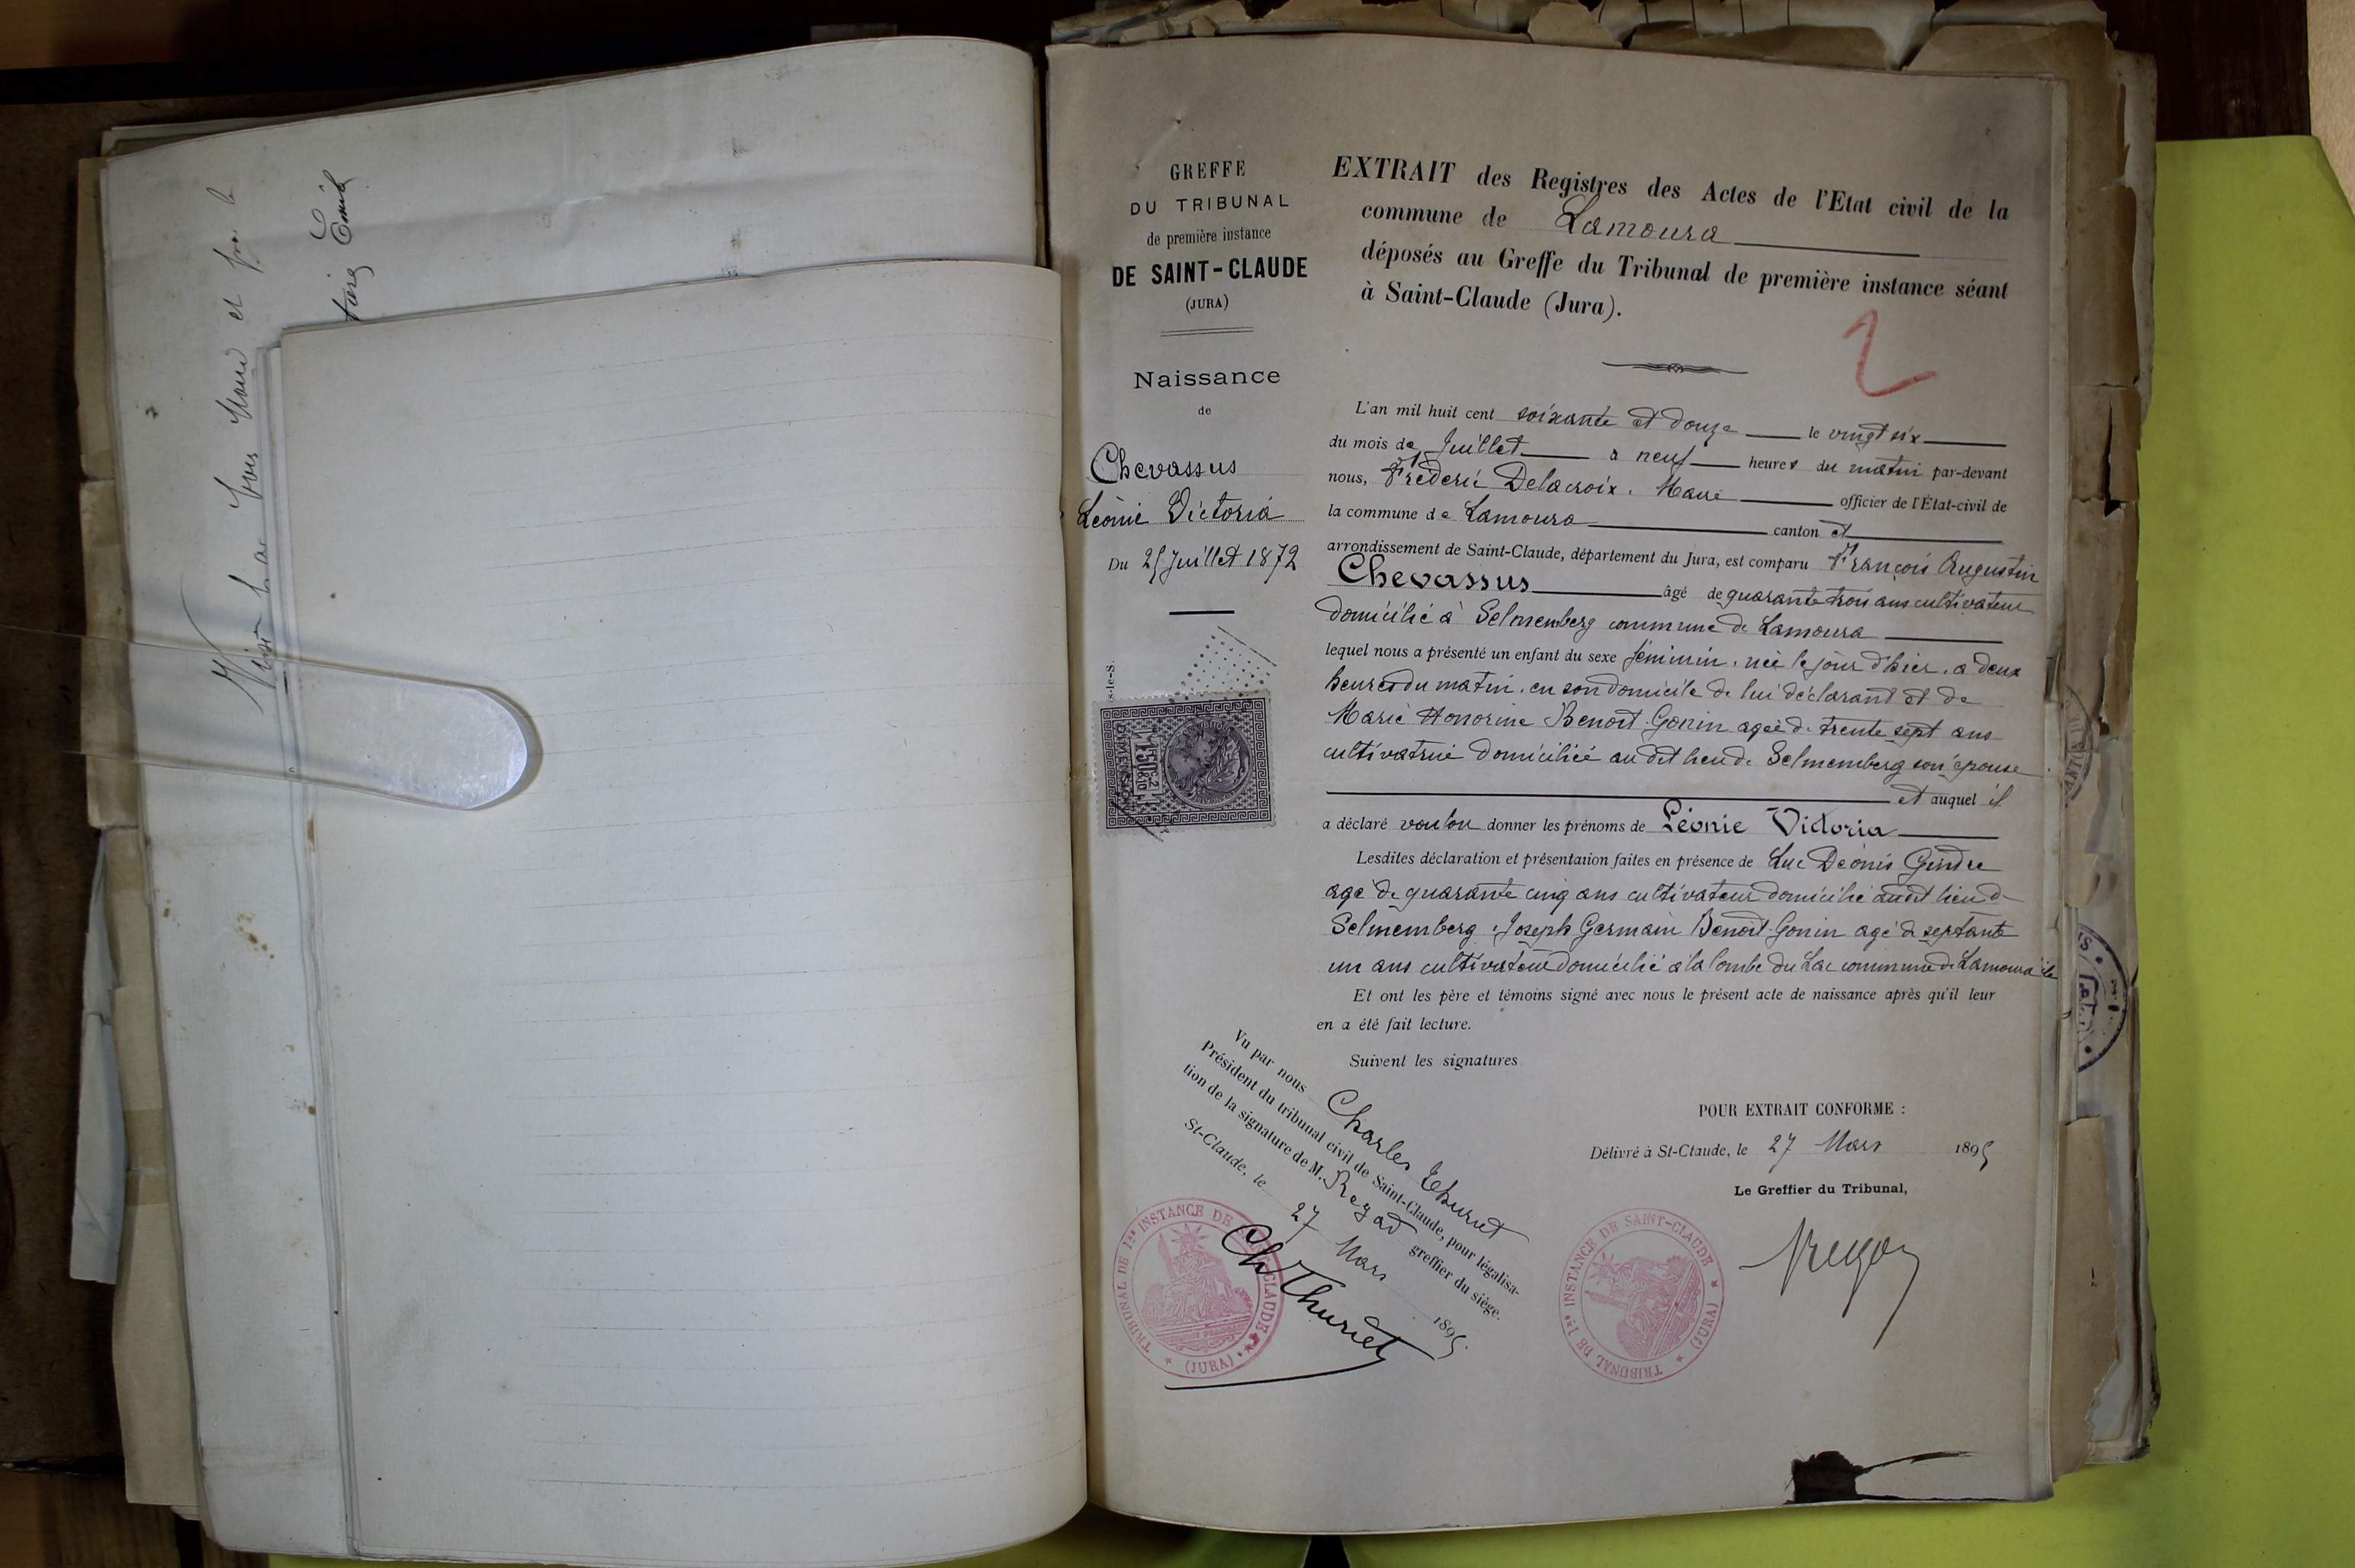 GREFFE
DU TRIBUNAL
de première instance
DE SAINT-CLAUDE
(JURA)
Naissance
de
Chevassus
Léonie Victoria
Du 25 Juillet 1872
EXTRAIT des Registres des Actes de l'Etat civil de la
commune de Lamoura
déposés au Greffe du Tribunal de première instance séant
à Saint-Claude (Jura).
2
L'an mil huit cent soixante et douze le vingt six
du mois de Juillet à neuf heures du matin par-devant
nous, Fréderic Delacroix. Maire officier de l'État-civil de
la commune de Lamoura canton et
arrondissement de Saint-Claude, département du Jura, est comparu François Augustin
Chevassus âgé de quarante trois ans cultivateur
domicilié à Selmemberg commune de Lamoura
lequel nous a présenté un enfant du sexe féminin. née le jour d'hier. a deux
heures du matin. en son domicile de lui déclarant et de
Marie Honorine Benoit-Gonin agée de trente sept ans
cultivatrice domiciliée au dit lieu de Selmemberg son épouse
et auquel il
a déclaré vouloir donner les prénoms de Léonie Victoria
Lesdites déclaration et présentation faites en présence de Luc Déonis Gindre
agé de quarante cinq ans cultivateur domicilié audit lieu de
Selmemberg. Joseph Germain Benoit-Gonin agé de septante
un ans cultivateur domicilié à la Combe du Lac commune de Lamoura
Et ont les père et témoins signé avec nous le présent acte de naissance après qu'il leur
en a été fait lecture.
Suivent les signatures
Vu par nous Charles Thuriet
Président du tribunal civil de Saint-Claude, pour légalisa-
tion de la signature de M. Regad greffier du siège.
St-Claude, le 27 Mars 1895.
Ch Thuriet
TRIBUNAL DE 1re INSTANCE DE CLAUDE (JURA)
POUR EXTRAIT CONFORME :
Délivré à St-Claude, le 27 Mars 1895
Le Greffier du Tribunal,
Regad
TRIBUNAL DE 1re INSTANCE DE SAINT-CLAUDE (JURA)